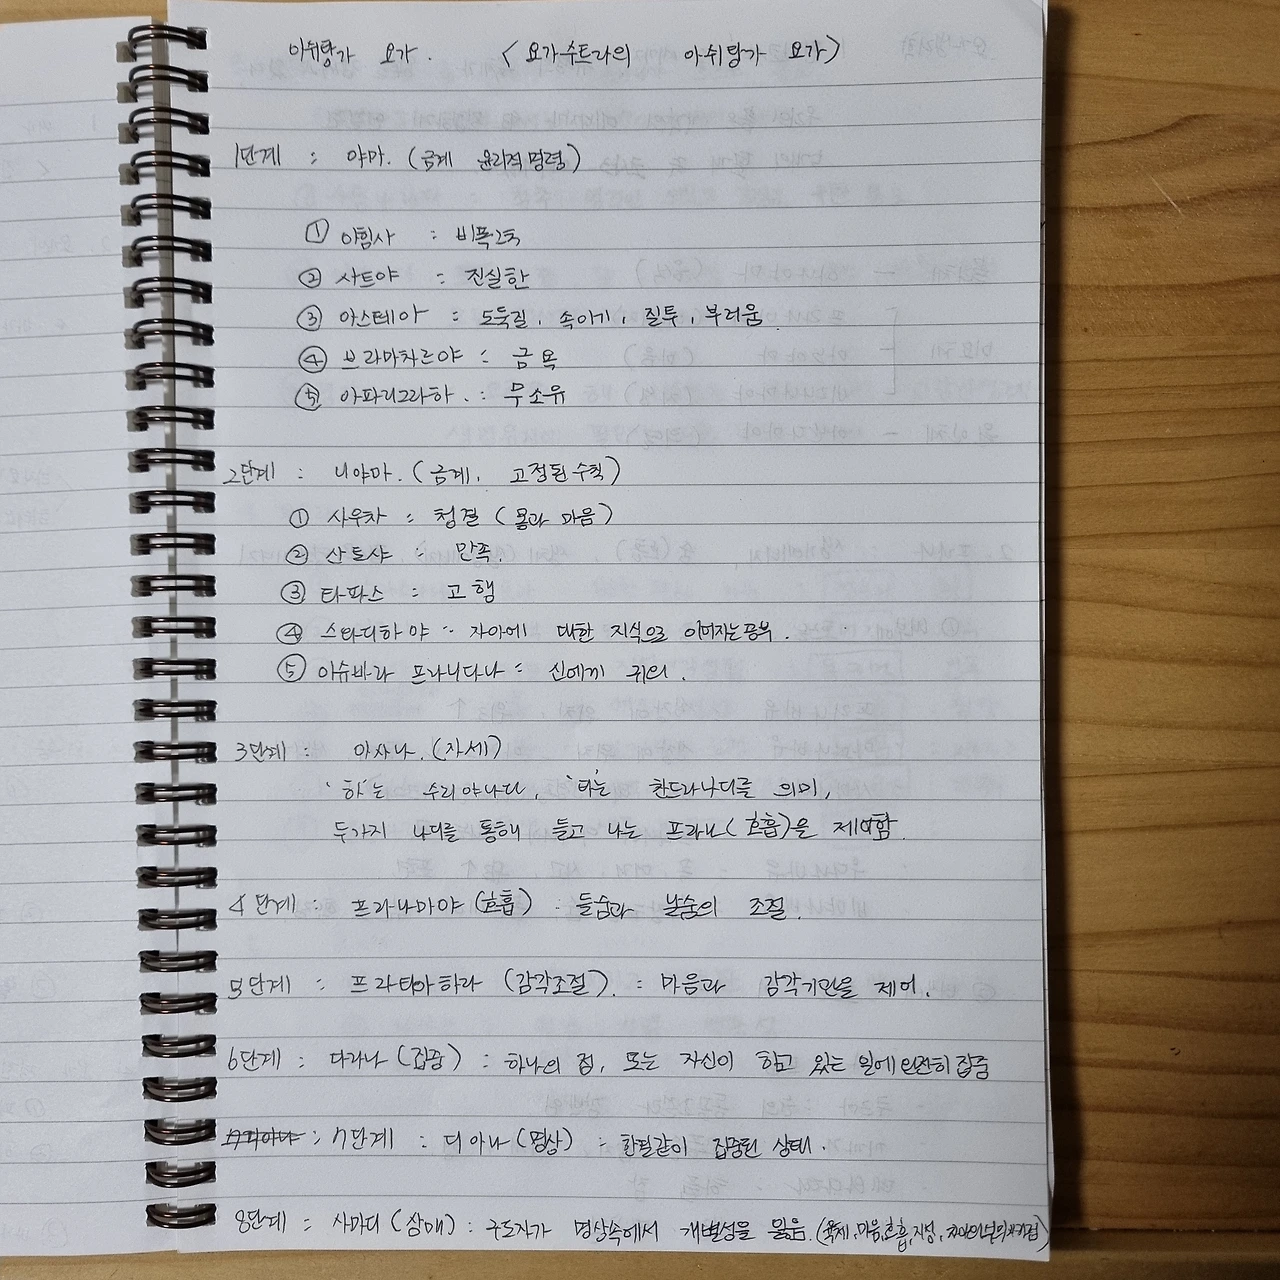 아쉬탕가 요가. <요가수트라의 아쉬탕가 요가>
1단계 : 야마. (금계 윤리적 명령)
① 아힘사 : 비폭력
② 사트야 : 진실한
③ 아스테아 : 도둑질, 속이기, 질투, 부러움
④ 브라마차르야 : 금욕
⑤ 아파리그라하. : 무소유
2단계 : 니야마. (금계, 고정된 수칙)
① 사우차 : 청결 (몸과 마음)
② 산토샤 : 만족.
③ 타파스 : 고행
④ 스와디하야 : 자아에 대한 지식으로 이어지는 공부.
⑤ 이슈바라 프라니다나 : 신에게 귀의.
3단계 : 아사나. (자세)
'하'는 수리야나디, '타'는 찬드라나디를 의미,
두가지 나디를 통해 들고 나는 프라나(호흡)을 제어함.
4단계 : 프라나마야 (호흡) : 들숨과 날숨의 조절.
5단계 : 프라티아하라 (감각조절). : 마음과 감각기관을 제어.
6단계 : 다라나 (집중) : 하나의 점, 또는 자신이 하고 있는 일에 완전히 집중
: 7단계 : 디아나 (명상) : 한결같이 집중된 상태.
8단계 : 사마디 (삼매) : 구도자가 명상속에서 개별성을 잃음. (육체, 마음, 호흡, 지성,